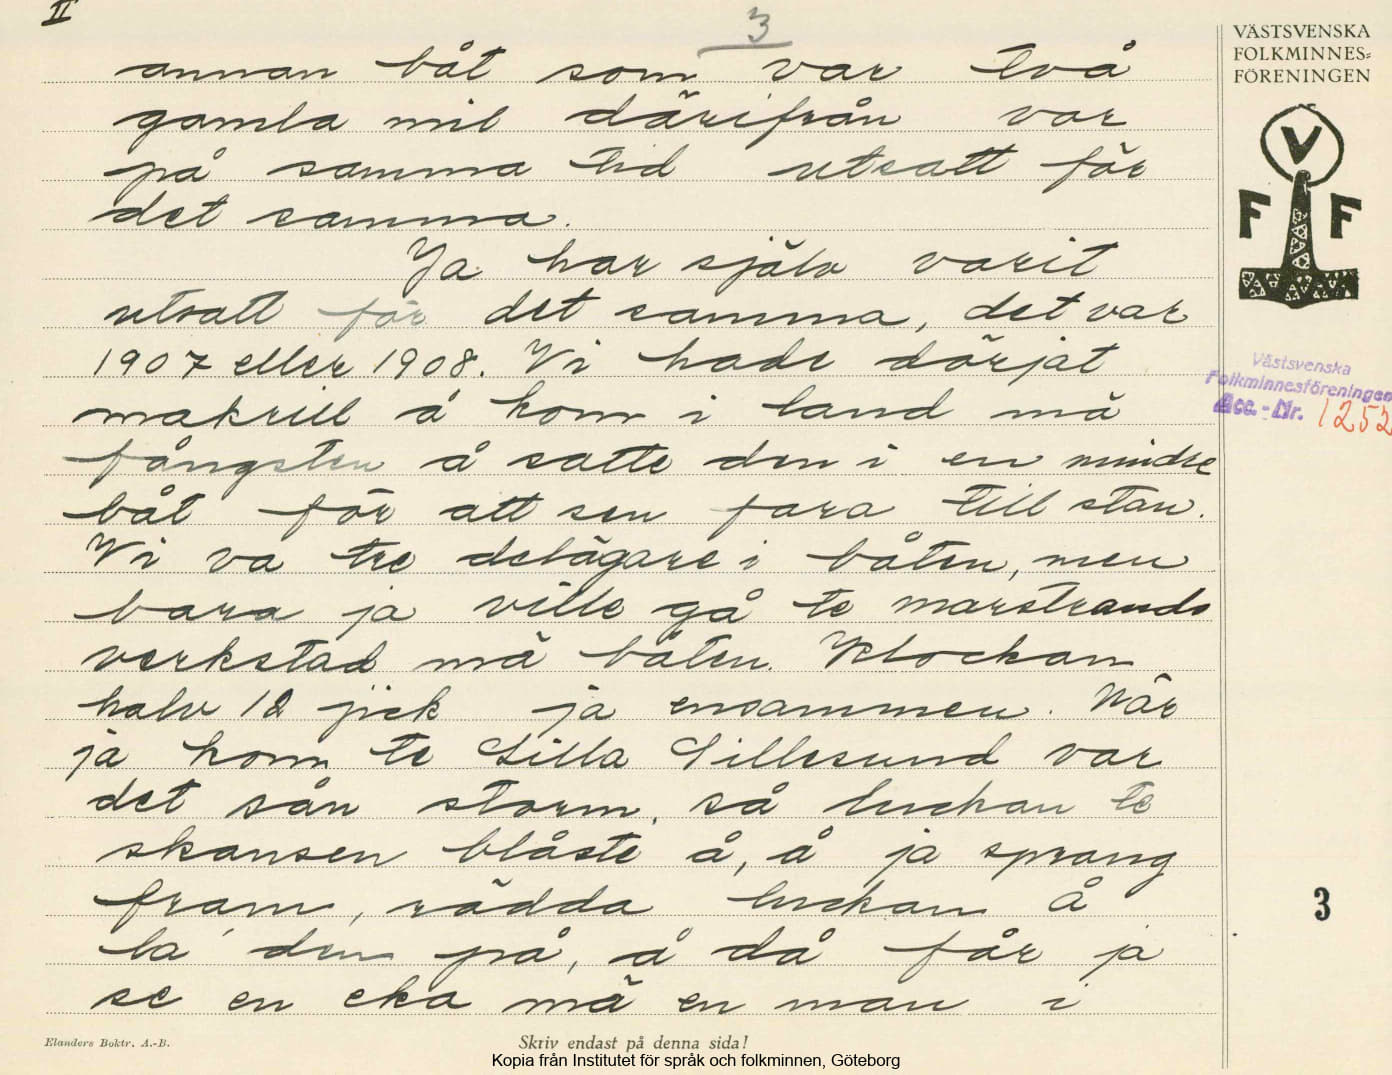 II
3
VÄSTSVENSKA
FOLKMINNES-
FÖRENINGEN
annan båt som var två
gamla mil därifrån var
på samma tid utsatt för
det samma.
Ja har själv varit
utsatt för det samma, det var
1907 eller 1908. Vi hade dörjat
makrill å kom i land mä
fångsten å satte den i en mindre
båt för att sen fara till stan.
Vi va tre delägare i båten, men
bara ja ville gå te marstrands
verkstad mä båten. Klockan
halv 12 jick ja ensammen. När
ja kom te Lilla Sillesund var
det sån storm, så luckan te
skansen blåste å, å ja sprang
fram, rädda luckan å
la den på, å då får ja
se en eka mä en man i
V
F F
Västsvenska
Folkminnesföreningen
Acc.-Nr. 1252
3
Elanders Boktr. A.-B.
Skriv endast på denna sida!
Kopia från Institutet för språk och folkminnen, Göteborg